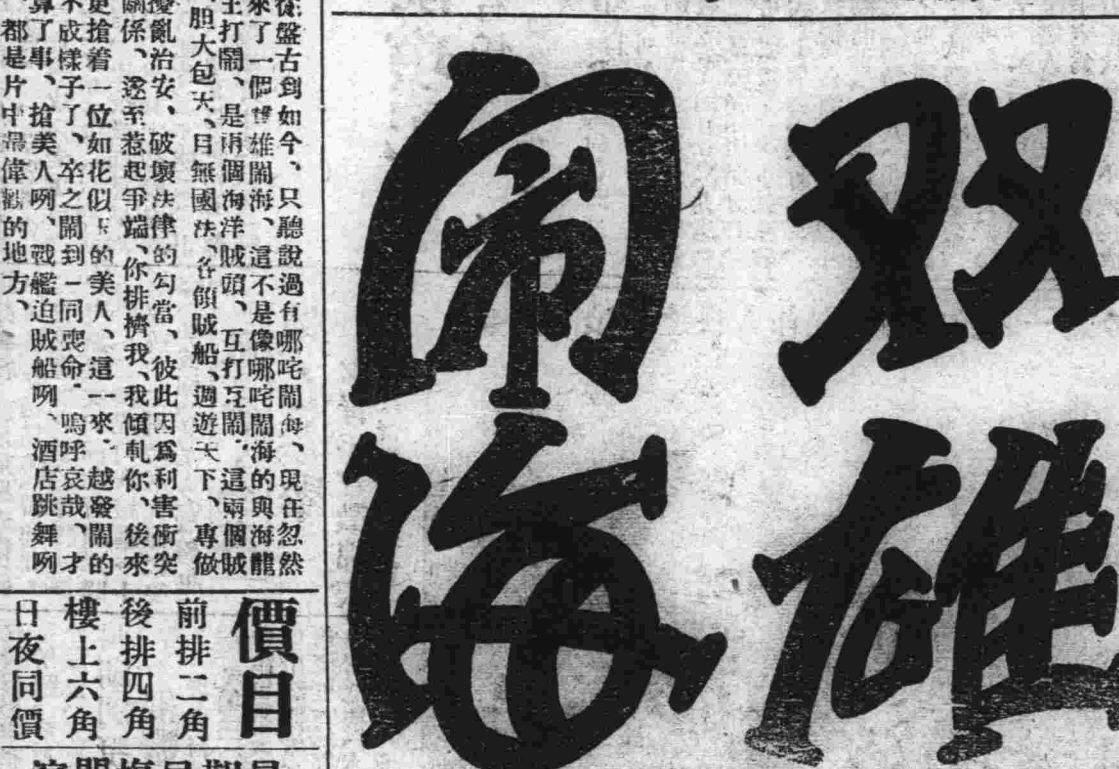 双雄
鬧海
從盤古到如今、只聽說過有哪咤鬧海、現在忽然
來了一個雙雄鬧海、這不是像哪咤鬧海的與海龍
王打鬧、是兩個海洋賊頭、互打互鬧、這兩個賊
胆大包天、目無國法、各領賊船、週遊天下、專做
擾亂治安、破壞法律的勾當、彼此因爲利害衝突
關係、遂至惹起爭端、你排擠我、我傾軋你、後來
更搶着一位如花似玉的美人、這一來、越發鬧的
不成樣子了、卒之鬧到一同喪命、嗚呼哀哉、才
算了事、搶美人咧、戰艦迫賊船咧、酒店跳舞咧
都是片中最偉觀的地方、
價目
前排二角
後排四角
樓上六角
日夜同價